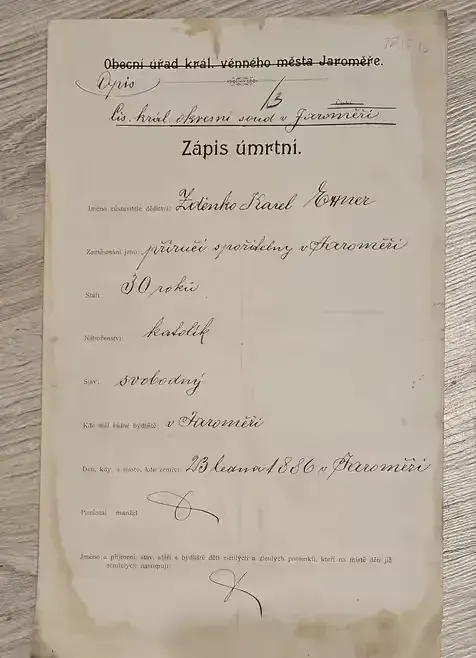 Obecní úřad král. věnného města Jaroměře.
Opis
/3
Cís. král. okresní soud v Jaroměři
Zápis úmrtní.
Jméno zůstavitele dědictví: Zdenko Karel Exner
Zaměstnání jeho: příručí spořitelny v Jaroměři
Stáří: 30 roků
Náboženství: katolík
Stav: svobodný
Kde měl řádné bydliště: v Jaroměři
Den, kdy a místo, kde zemřel: 23 ledna 1886 v Jaroměři
Pozůstal manžel
Jméno a příjmení, stav, stáří a bydliště dětí zletilých a zletilých potomků, kteří na místě dětí již
zemřelých nastupují: